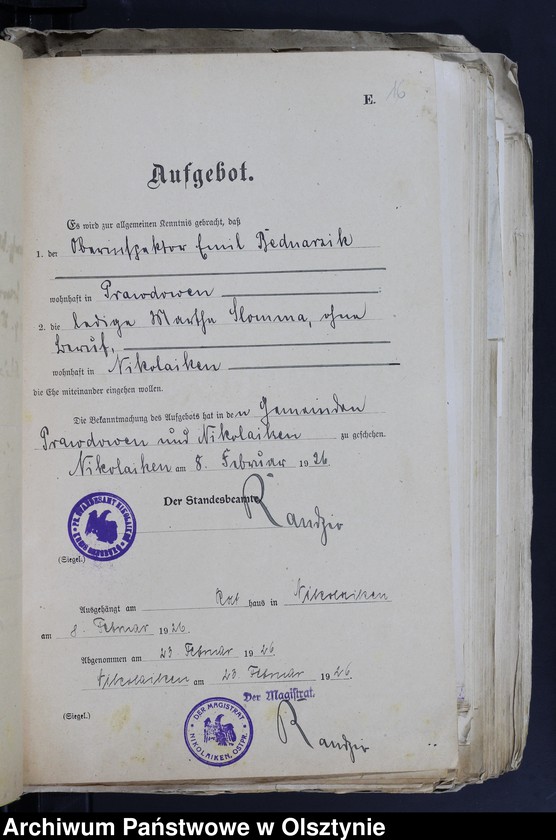 E. 16
Aufgebot.
Es wird zur allgemeinen Kenntnis gebracht, daß
1. der Oberinspektor Emil Bednarzik
wohnhaft in Prawdowen
2. die ledige Martha Slomma, ohne
Beruf,
wohnhaft in Nikolaiken
die Ehe miteinander eingehen wollen.
Die Bekanntmachung des Aufgebots hat in den Gemeinden
Prawdowen und Nikolaiken zu geschehen.
Nikolaiken am 8. Februar 1926
Der Standesbeamte
Randzio
(Siegel.)
Ausgehängt am Rathaus in Nikolaiken
am 8. Februar 1926
Abgenommen am 23 Februar 1926
Nikolaiken am 23. Februar 1926.
Der Magistrat.
(Siegel.)
DER MAGISTRAT
NIKOLAIKEN, OSTPR.
Randzio
Archiwum Państwowe w Olsztynie